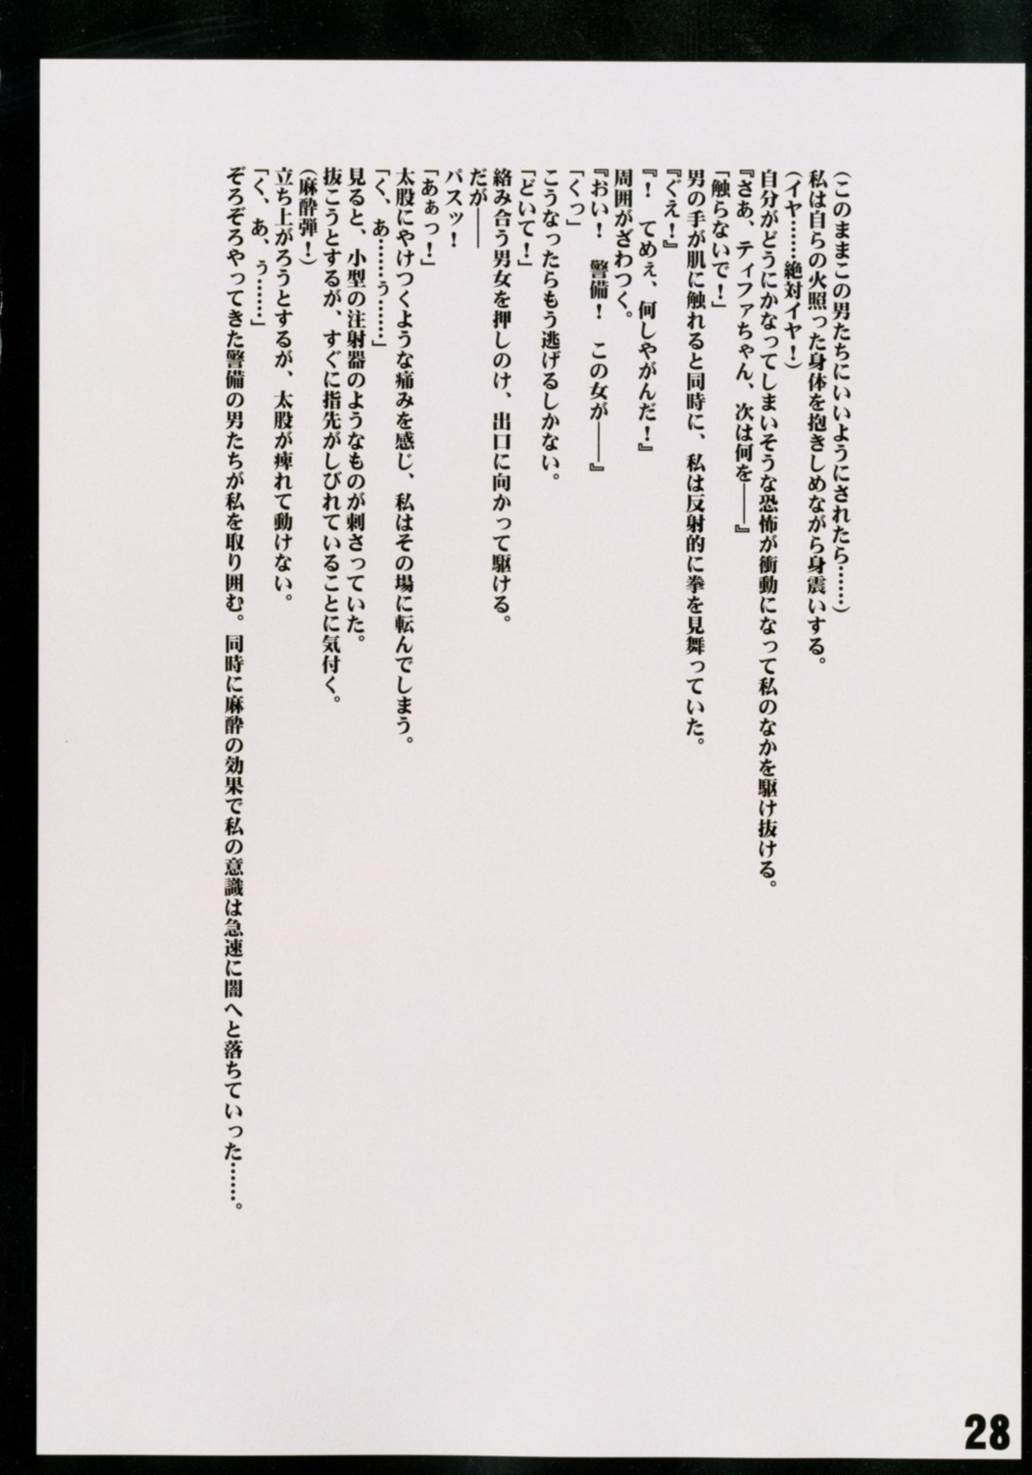 (このままこの男たちにいいようにされたら……)
私は自らの火照った身体を抱きしめながら身震いする。
(イヤ……絶対イヤ!)
自分がどうにかなってしまいそうな恐怖が衝動になって私のなかを駆け抜ける。
『さあ、ティファちゃん、次は何を――』
「触らないで!」
男の手が肌に触れると同時に、私は反射的に拳を見舞っていた。
『ぐえ!』
『! てめぇ、何しやがんだ!』
周囲がざわつく。
『おい! 警備! この女が――』
「くっ」
こうなったらもう逃げるしかない。
「どいて!」
絡み合う男女を押しのけ、出口に向かって駆ける。
だが――
パスッ!
「あぁっ!」
太股にやけつくような痛みを感じ、私はその場に転んでしまう。
「く、あ……ぅ……」
見ると、小型の注射器のようなものが刺さっていた。
抜こうとするが、すぐに指先がしびれていることに気付く。
(麻酔弾!)
立ち上がろうとするが、太股が痺れて動けない。
「く、あ、ぅ……」
ぞろぞろやってきた警備の男たちが私を取り囲む。同時に麻酔の効果で私の意識は急速に闇へと落ちていった……。
28